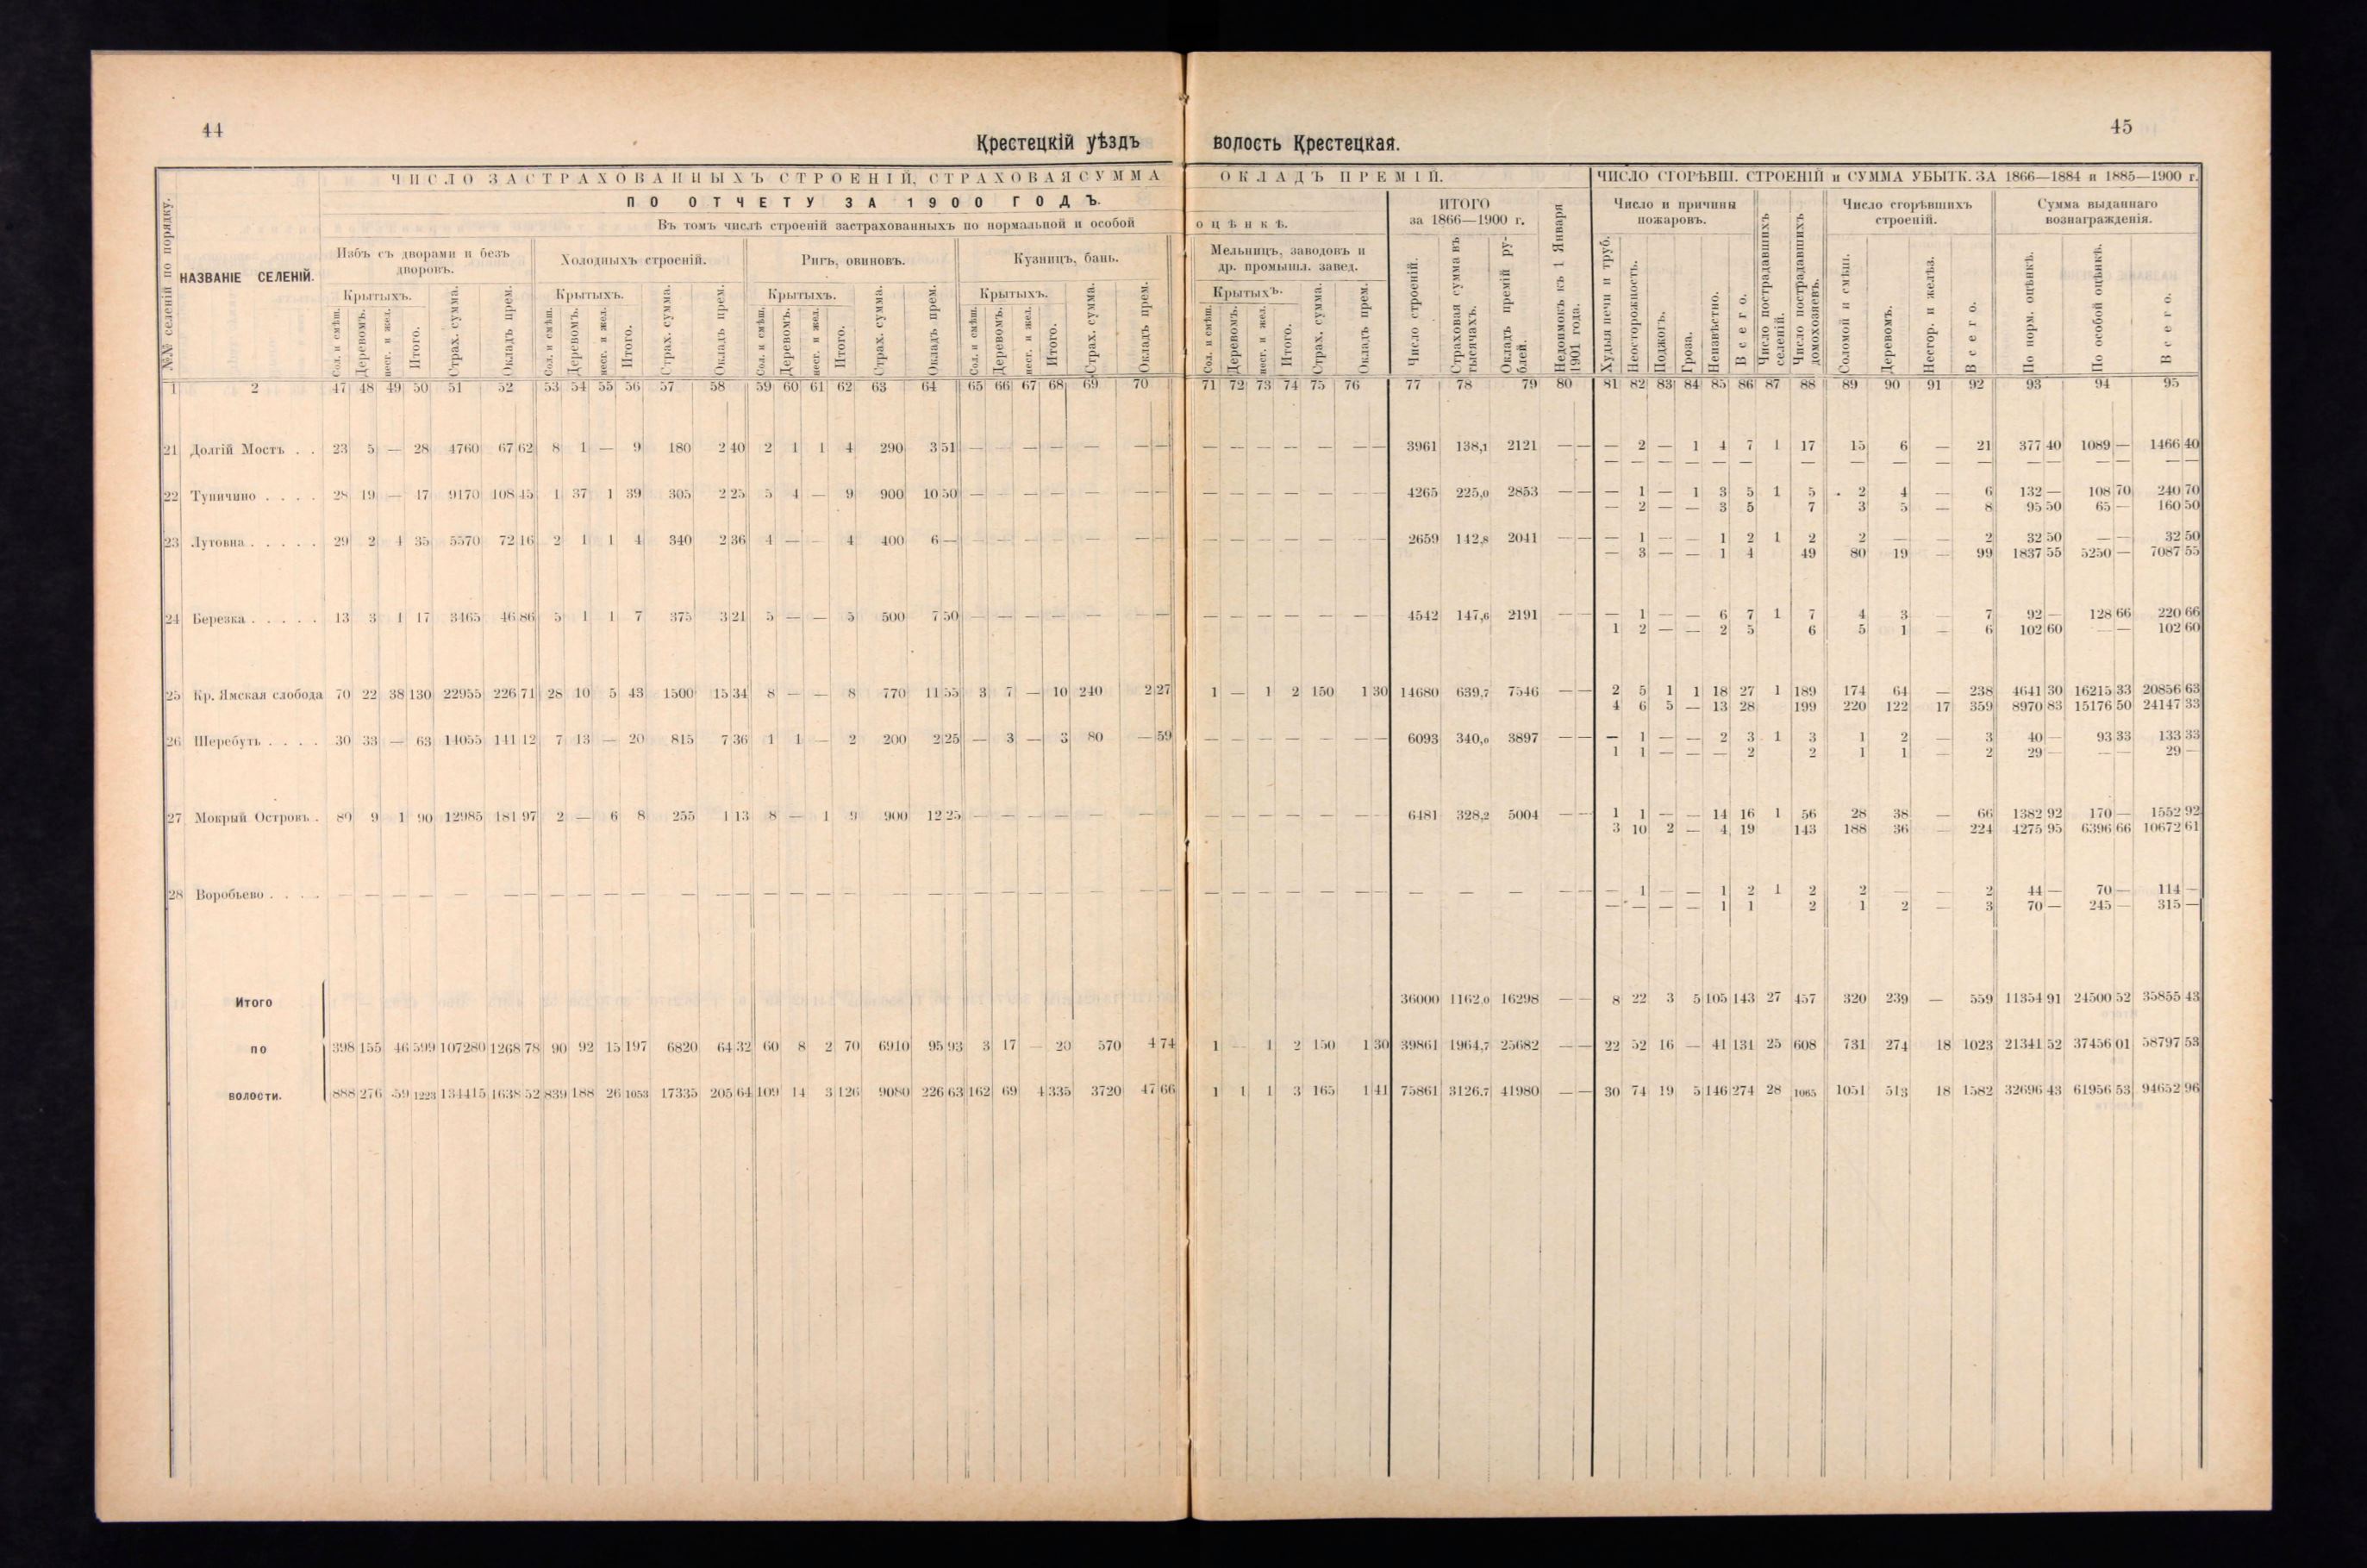 44
Крестецкій уѣздъ
волость Крестецкая.
45
№№ селеній по порядку.
НАЗВАНІЕ СЕЛЕНІЙ.
ЧИСЛО ЗАСТРАХОВАННЫХЪ СТРОЕНІЙ, СТРАХОВАЯ СУММА
ОКЛАДЪ ПРЕМІЙ.
ЧИСЛО СГОРѢВШ. СТРОЕНІЙ и СУММА УБЫТК. ЗА 1866—1884 и 1885—1900 г.
ПО ОТЧЕТУ ЗА 1900 ГОДЪ.
Въ томъ числѣ строеній застрахованныхъ по нормальной и особой
оцѣнкѣ.
ИТОГО за 1866—1900 г.
Недоимокъ къ 1 Января 1901 года.
Число и причины пожаровъ.
Число пострадавшихъ селеній.
Число пострадавшихъ домохозяевъ.
Число сгорѣвшихъ строеній.
Сумма выданнаго вознагражденія.
Избъ съ дворами и безъ дворовъ.
Холодныхъ строеній.
Ригъ, овиновъ.
Кузницъ, бань.
Мельницъ, заводовъ и др. промышл. завед.
Крытыхъ. Крытыхъ. Крытыхъ. Крытыхъ. Крытыхъ.
Сол. и смѣш. Деревомъ. несг. и жел. Итого. Страх. сумма. Окладъ прем.
Сол. и смѣш. Деревомъ. несг. и жел. Итого. Страх. сумма. Окладъ прем.
Сол. и смѣш. Деревомъ. несг. и жел. Итого. Страх. сумма. Окладъ прем.
Сол. и смѣш. Деревомъ. несг. и жел. Итого. Страх. сумма. Окладъ прем.
Сол. и смѣш. Деревомъ. несг. и жел. Итого. Страх. сумма. Окладъ прем.
Число строеній. Страховая сумма въ тысячахъ. Окладъ премій рублей.
Худыя печи и труб. Неосторожность. Поджогъ. Гроза. Неизвѣстно. Всего.
Соломой и смѣш. Деревомъ. Несгор. и желѣз. Всего.
По норм. оцѣнкѣ. По особой оцѣнкѣ. Всего.
1 2 47 48 49 50 51 52 53 54 55 56 57 58 59 60 61 62 63 64 65 66 67 68 69 70 71 72 73 74 75 76 77 78 79 80 81 82 83 84 85 86 87 88 89 90 91 92 93 94 95
21 Долгій Мостъ . . 23 5 — 28 4760 67 62 8 1 — 9 180 2 40 2 1 1 4 290 3 51 — — — — — — — — — — — — — — 3961 138,1 2121 — — — 2 — 1 4 7 1 17 15 6 — 21 377 40 1089 — 1466 40
— — — — — — — — — — — — — — — —
22 Тупичино . . . . 28 19 — 47 9170 108 45 1 37 1 39 305 2 25 5 4 — 9 900 10 50 — — — — — — — — — — — — — — 4265 225,0 2853 — — — 1 — 1 3 5 1 5 2 4 — 6 132 — 108 70 240 70
— 2 — — 3 5 7 3 5 — 8 95 50 65 — 160 50
23 Лутовна . . . . . 29 2 4 35 5570 72 16 2 1 1 4 340 2 36 4 — — 4 400 6 — — — — — — — — — — — — — — — 2659 142,8 2041 — — — 1 — — 1 2 1 2 2 — — 2 32 50 — — 32 50
— 3 — — 1 4 49 80 19 — 99 1837 55 5250 — 7087 55
24 Березка . . . . . 13 3 1 17 3465 46 86 5 1 1 7 375 3 21 5 — — 5 500 7 50 — — — — — — — — — — — — — — 4542 147,6 2191 — — — 1 — — 6 7 1 7 4 3 — 7 92 — 128 66 220 66
1 2 — — 2 5 6 5 1 — 6 102 60 — — 102 60
25 Кр. Ямская слобода 70 22 38 130 22955 226 71 28 10 5 43 1500 15 34 8 — — 8 770 11 55 3 7 — 10 240 2 27 1 — 1 2 150 1 30 14680 639,7 7546 — — 2 5 1 1 18 27 1 189 174 64 — 238 4641 30 16215 33 20856 63
4 6 5 — 13 28 199 220 122 17 359 8970 83 15176 50 24147 33
26 Шеребуть . . . . 30 33 — 63 14055 141 12 7 13 — 20 815 7 36 1 1 — 2 200 2 25 — 3 — 3 80 — 59 — — — — — — — 6093 340,0 3897 — — — 1 — — 2 3 1 3 1 2 — 3 40 — 93 33 133 33
1 1 — — — 2 2 1 1 — 2 29 — — — 29 —
27 Мокрый Островъ . 80 9 1 90 12985 181 97 2 — 6 8 255 1 13 8 — 1 9 900 12 25 — — — — — — — — — — — — — 6481 328,2 5004 — — 1 1 — — 14 16 1 56 28 38 — 66 1382 92 170 — 1552 92
3 10 2 — 4 19 143 188 36 — 224 4275 95 6396 66 10672 61
28 Воробьево . . . . — — — — — — — — — — — — — — — — — — — — — — — — — — — — — — — — — — — — — — — — — — — 1 — — 1 2 1 2 2 — — 2 44 — 70 — 114 —
— — — — 1 1 2 1 2 — 3 70 — 245 — 315 —
Итого 36000 1162,0 16298 — — 8 22 3 5 105 143 27 457 320 239 — 559 11354 91 24500 52 35855 43
по 398 155 46 599 107280 1268 78 90 92 15 197 6820 64 32 60 8 2 70 6910 95 93 3 17 — 20 570 4 74 1 — 1 2 150 1 30 39861 1964,7 25682 — — 22 52 16 — 41 131 25 608 731 274 18 1023 21341 52 37456 01 58797 53
волости. 888 276 59 1223 134415 1638 52 839 188 26 1053 17335 205 64 109 14 3 126 9080 226 63 162 69 4 335 3720 47 66 1 1 1 3 165 1 41 75861 3126,7 41980 — — 30 74 19 5 146 274 28 1065 1051 513 18 1582 32696 43 61956 53 94652 96